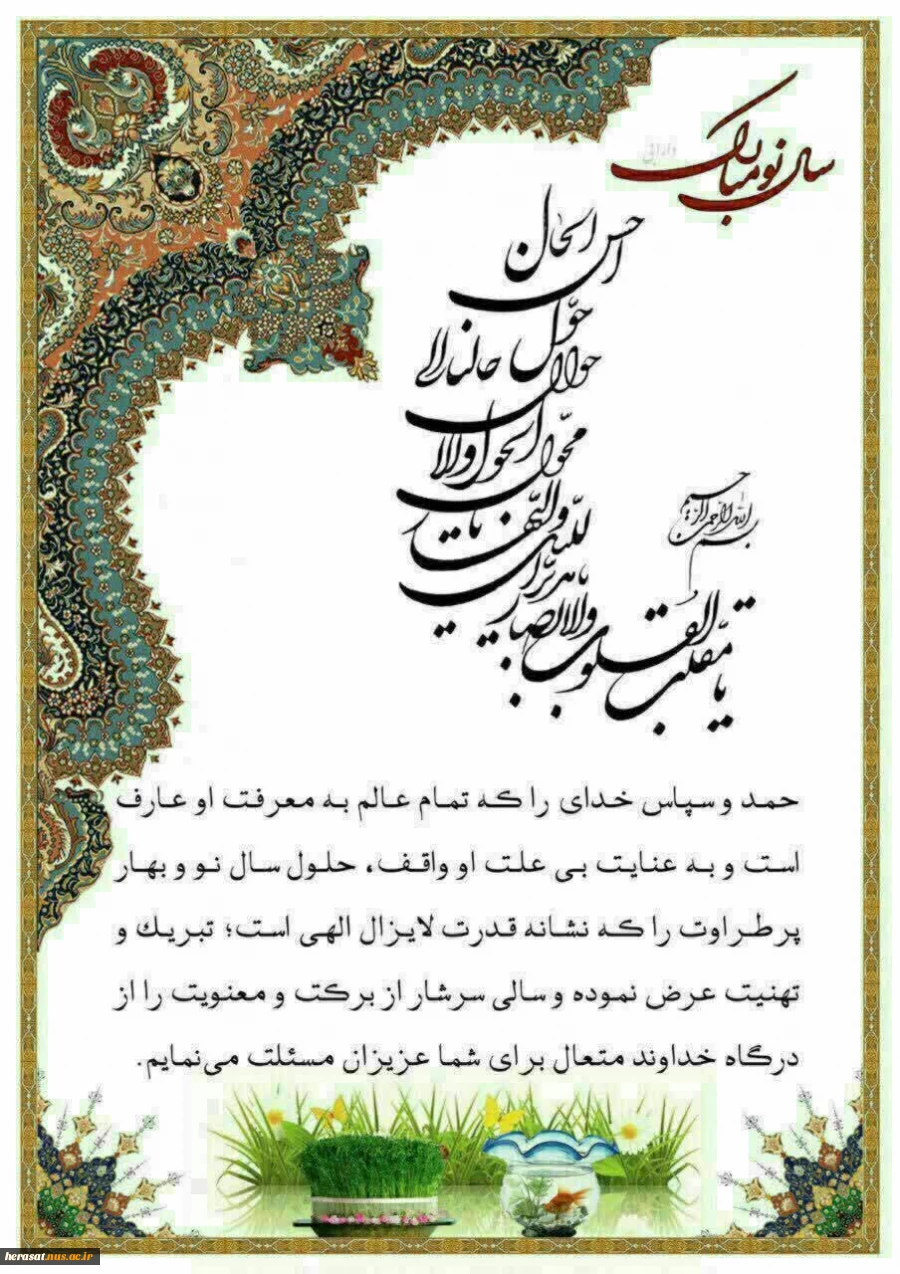 سال نو مبارک
بسم الله الرحمن الرحیم
یا مقلب القلوب والابصار
یا مدبر اللیل و النهار
یا محول الحول والاحوال
حول حالنا الی
احسن الحال
حمد و سپاس خدای را که تمام عالم به معرفت او عارف
است و به عنایت بی علت او واقف، حلول سال نو و بهار
پر طراوت را که نشانه قدرت لایزال الهی است؛ تبریک و
تهنیت عرض نموده و سالی سرشار از برکت و معنویت را از
درگاه خداوند متعال برای شما عزیزان مسئلت می‌نمایم.
herasat.nus.ac.ir